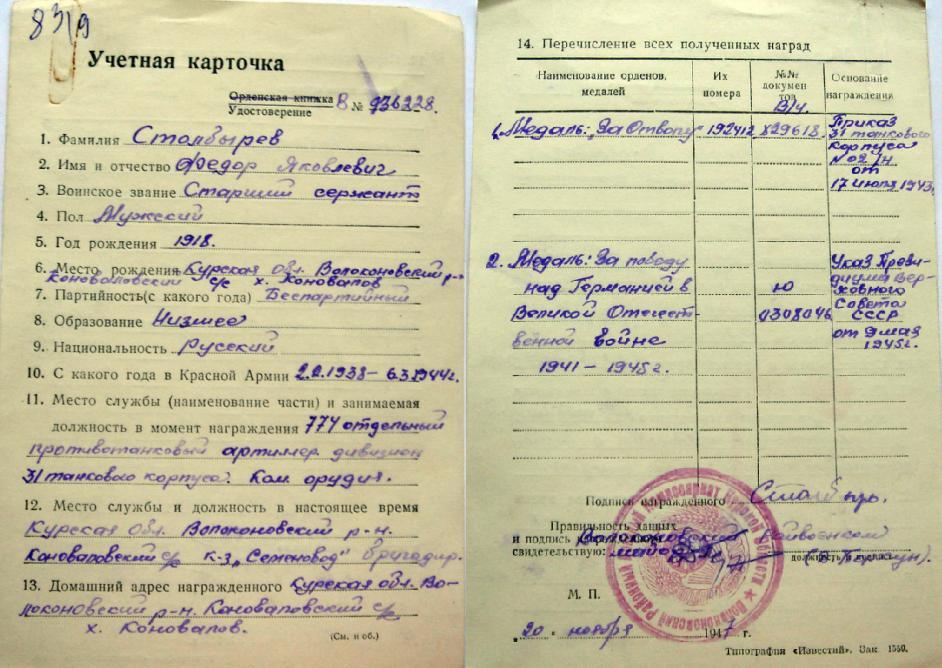 83/9
Учетная карточка
Орденская книжка В № 936228.
Удостоверение
1. Фамилия Столбырев
2. Имя и отчество Федор Яковлевич
3. Воинское звание Старший сержант
4. Пол Мужский
5. Год рождения 1918.
6. Место рождения Курская обл. Волоконовский р-н
Коноваловский с/с х. Коновалов
7. Партийность(с какого года) Беспартийный
8. Образование Низшее
9. Национальность Русский
10. С какого года в Красной Армии 2.2.1938 – 6.3.1944г.
11. Место службы (наименование части) и занимаемая
должность в момент награждения 774 отдельный
противотанковый артиллер. дивизион
31 танкового корпуса. Ком. орудия.
12. Место службы и должность в настоящее время
Курская Обл. Волоконовский р-н.
Коноваловский с/с к-з „Семеновод" бригадир.
13. Домашний адрес награжденного Курская обл. Во-
локоновский р-н. Коноваловский с/с
х. Коновалов.
(См. н об.)
14. Перечисление всех полученных наград
Наименование орденов, медалей
Их номера
№№ документов
В/ч.
Основание награждения
1. Медаль: „За Отвагу" 192412 829618 Приказ
31 танкового
корпуса
№02/н
от
17 июля 1943.
2. Медаль: За победу Указ Прези-
над Германией в Ю диума Вер-
ховного
Великой Отечест- 0308046 Совета
СССР
венной войне от 9 мая
1945г.
1941 – 1945 г.
Подпись награжденного Столбыр.
Правильность данных
и подпись
свидетельствую: Волоконовский райвоенком
майор
должность и подпись
М. П.
„20" ноября 1947 г.
Типография «Известий». Зак. 1550.